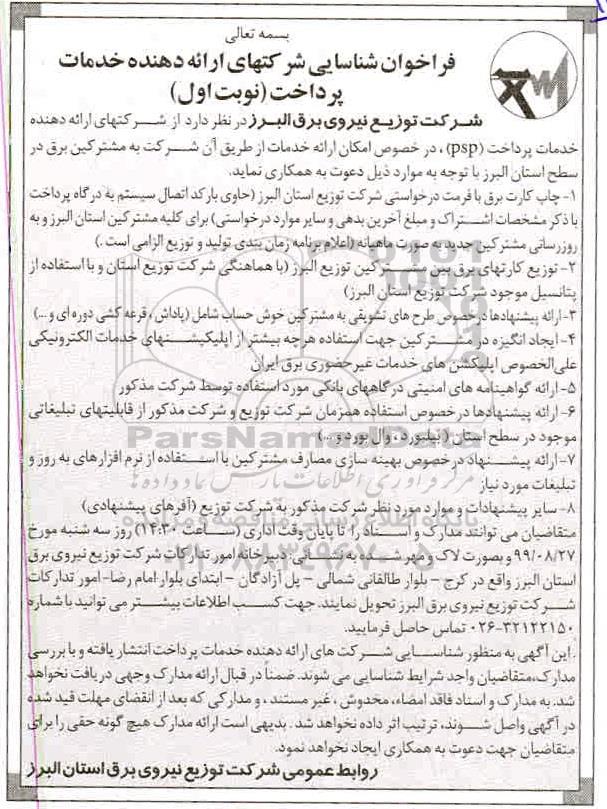 بسمه تعالی
فراخوان شناسایی شرکتهای ارائه دهنده خدمات
پرداخت (نوبت اول)
شرکت توزیع نیروی برق البرز در نظر دارد از شرکتهای ارائه دهنده
خدمات پرداخت (psp) ، در خصوص امکان ارائه خدمات از طریق آن شرکت به مشترکین برق در
سطح استان البرز با توجه به موارد ذیل دعوت به همکاری نماید.
۱- چاپ کارت برق با فرمت درخواستی شرکت توزیع استان البرز (حاوی بارکد اتصال سیستم به درگاه پرداخت
با ذکر مشخصات اشتراک و مبلغ آخرین بدهی و سایر موارد درخواستی) برای کلیه مشترکین استان البرز و به
روزرسانی مشترکین جدید به صورت ماهیانه (اعلام برنامه زمان بندی تولید و توزیع الزامی است .)
۲- توزیع کارتهای برق بین مشترکین توزیع البرز (با هماهنگی شرکت توزیع استان و با استفاده از
پتانسیل موجود شرکت توزیع استان البرز)
۳- ارائه پیشنهادها درخصوص طرح های تشویقی به مشترکین خوش حساب شامل (پاداش ، قرعه کشی دوره ای و ...)
۴- ایجاد انگیزه در مشترکین جهت استفاده هرچه بیشتر از اپلیکیشنهای خدمات الکترونیکی
علی الخصوص اپلیکشن های خدمات غیرحضوری برق ایران
۵- ارائه گواهینامه های امنیتی درگاههای بانکی مورد استفاده توسط شرکت مذکور
۶- ارائه پیشنهادها درخصوص استفاده همزمان شرکت توزیع و شرکت مذکور از قابلیتهای تبلیغاتی
موجود در سطح استان ( بیلبورد ، وال بورد و ...)
۷- ارائه پیشنهاد درخصوص بهینه سازی مصارف مشترکین با استفاده از نرم افزارهای به روز و
تبلیغات مورد نیاز
۸- سایر پیشنهادات و موارد مورد نظر شرکت مذکور به شرکت توزیع (آفرهای پیشنهادی)
متقاضیان می توانند مدارک و اسناد را تا پایان وقت اداری (ساعت ۱۴:۳۰) روز سه شنبه مورخ
۹۹/۰۸/۲۷ و بصورت لاک و مهر شده به نشانی: دبیرخانه امور تدارکات شرکت توزیع نیروی برق
استان البرز واقع در کرج - بلوار طالقانی شمالی - پل آزادگان - ابتدای بلوار امام رضا- امور تدارکات
شرکت توزیع نیروی برق البرز تحویل نمایند. جهت کسب اطلاعات بیشتر می توانید با شماره
۰۲۶-۳۲۱۲۲۱۵۰ تماس حاصل فرمایید.
این آگهی به منظور شناسایی شرکت های ارائه دهنده خدمات پرداخت انتشار یافته و با بررسی
مدارک، متقاضیان واجد شرایط شناسایی می شوند. ضمناً در قبال ارائه مدارک وجهی دریافت نخواهد
شد. به مدارک و اسناد فاقد امضاء، مخدوش ، غیر مستند ، و مدارکی که بعد از انقضای مهلت قید شده
در آگهی واصل شوند، ترتیب اثر داده نخواهد شد . بدیهی است ارائه مدارک هیچ گونه حقی را برای
متقاضیان جهت دعوت به همکاری ایجاد نخواهد نمود.
روابط عمومی شرکت توزیع نیروی برق استان البرز
ParsNamadData